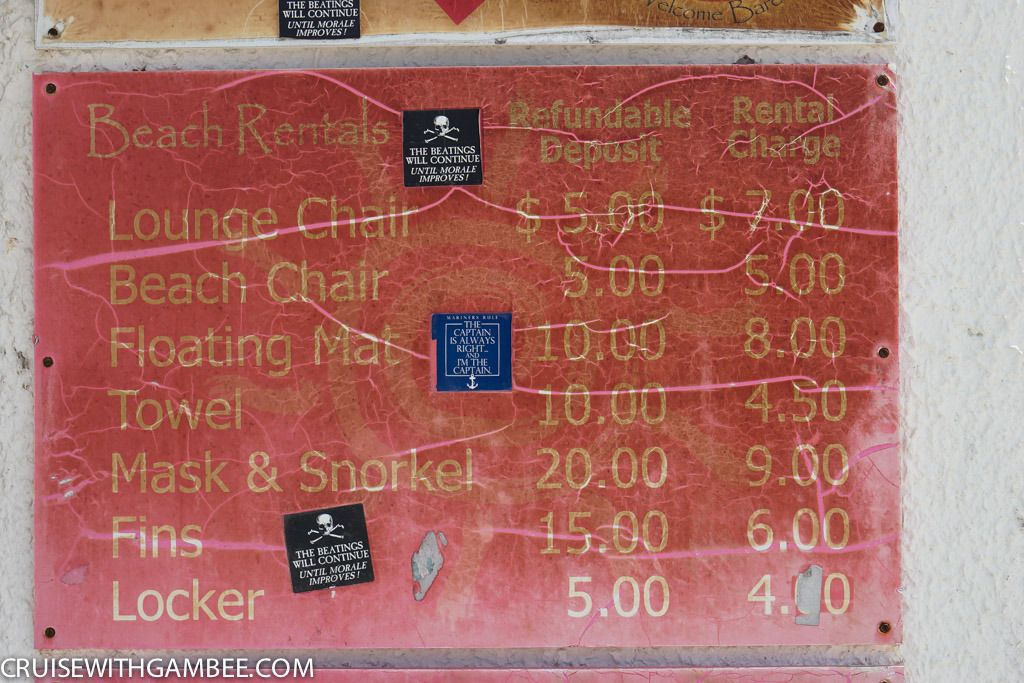 THE BEATINGS
WILL CONTINUE
UNTIL MORALE
IMPROVES!
Welcome
Beach Rentals
Refundable
Deposit
Rental
Charge
THE BEATINGS
WILL CONTINUE
UNTIL MORALE
IMPROVES!
Lounge Chair $ 5.00 $ 7.00
Beach Chair 5.00 5.00
Floating Mat 10.00 8.00
MARINERS RULE
THE
CAPTAIN
IS ALWAYS
RIGHT...
AND
I'M THE
CAPTAIN.
Towel 10.00 4.50
Mask & Snorkel 20.00 9.00
Fins 15.00 6.00
THE BEATINGS
WILL CONTINUE
UNTIL MORALE
IMPROVES!
Locker 5.00
CRUISEWITHGAMBEE.COM